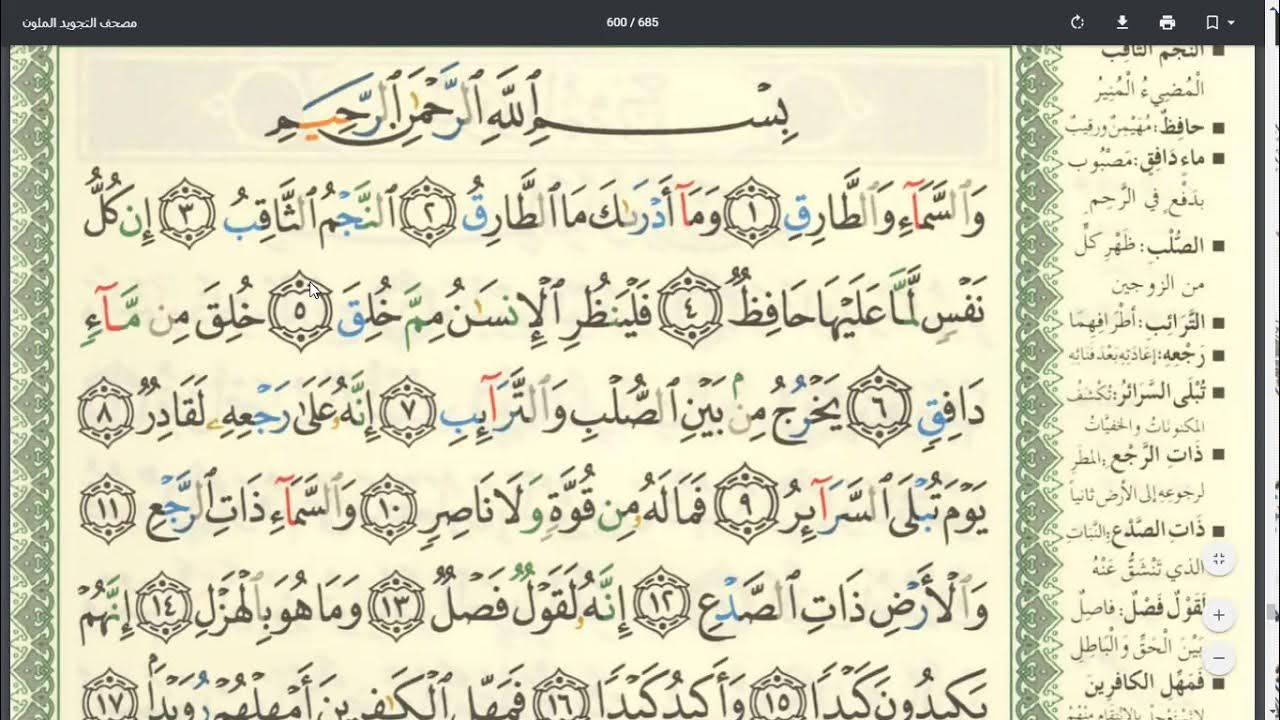 مصحف التجويد الملون
600 / 685
بِسْمِ ٱللَّهِ ٱلرَّحْمَٰنِ ٱلرَّحِيمِ
وَٱلسَّمَآءِ وَٱلطَّارِقِ ١ وَمَآ أَدْرَىٰكَ مَا ٱلطَّارِقُ ٢ ٱلنَّجْمُ ٱلثَّاقِبُ ٣ إِن كُلُّ
نَفْسٍ لَّمَّا عَلَيْهَا حَافِظٌ ٤ فَلْيَنظُرِ ٱلْإِنسَٰنُ مِمَّ خُلِقَ ٥ خُلِقَ مِن مَّآءٍ
دَافِقٍ ٦ يَخْرُجُ مِنۢ بَيْنِ ٱلصُّلْبِ وَٱلتَّرَآئِبِ ٧ إِنَّهُۥ عَلَىٰ رَجْعِهِۦ لَقَادِرٌ ٨
يَوْمَ تُبْلَى ٱلسَّرَآئِرُ ٩ فَمَا لَهُۥ مِن قُوَّةٍ وَلَا نَاصِرٍ ١٠ وَٱلسَّمَآءِ ذَاتِ ٱلرَّجْعِ ١١
وَٱلْأَرْضِ ذَاتِ ٱلصَّدْعِ ١٢ إِنَّهُۥ لَقَوْلٌ فَصْلٌ ١٣ وَمَا هُوَ بِٱلْهَزْلِ ١٤ إِنَّهُمْ
يَكِيدُونَ كَيْدًا ١٥ وَأَكِيدُ كَيْدًا ١٦ فَمَهِّلِ ٱلْكَٰفِرِينَ أَمْهِلْهُمْ رُوَيْدًۢا ١٧
النجم الثاقب
الْمُضِيءُ الْمُنِيرُ
حافظٌ: مُهَيْمِنٌ ورقيبٌ
ماء دَافِقٍ: مَصْبُوبٍ
بدَفْعٍ في الرَّحِمِ
الصُّلْبِ: ظَهْرِ كلٍّ
من الزوجين
التَّرَائِبِ: أطْرَافِهِمَا
رَجْعِهِ: إعَادَتِهِ بَعْدَ فَنَائِه
تُبْلَى السَّرَائرُ: تُكْشَفُ
المكنونات والخفيَّاتُ
ذَاتِ الرَّجْعِ: المطَرِ
لرجوعه إلى الأرض ثانياً
ذَاتِ الصَّدْعِ: النَّبَاتِ
الذي تَنْشَقُّ عَنْهُ
لَقَوْلٌ فَصْلٌ: فاصِلٌ
بَيْنَ الْحَقِّ وَالْبَاطِلِ
فَمَهِّلِ الكافرينَ